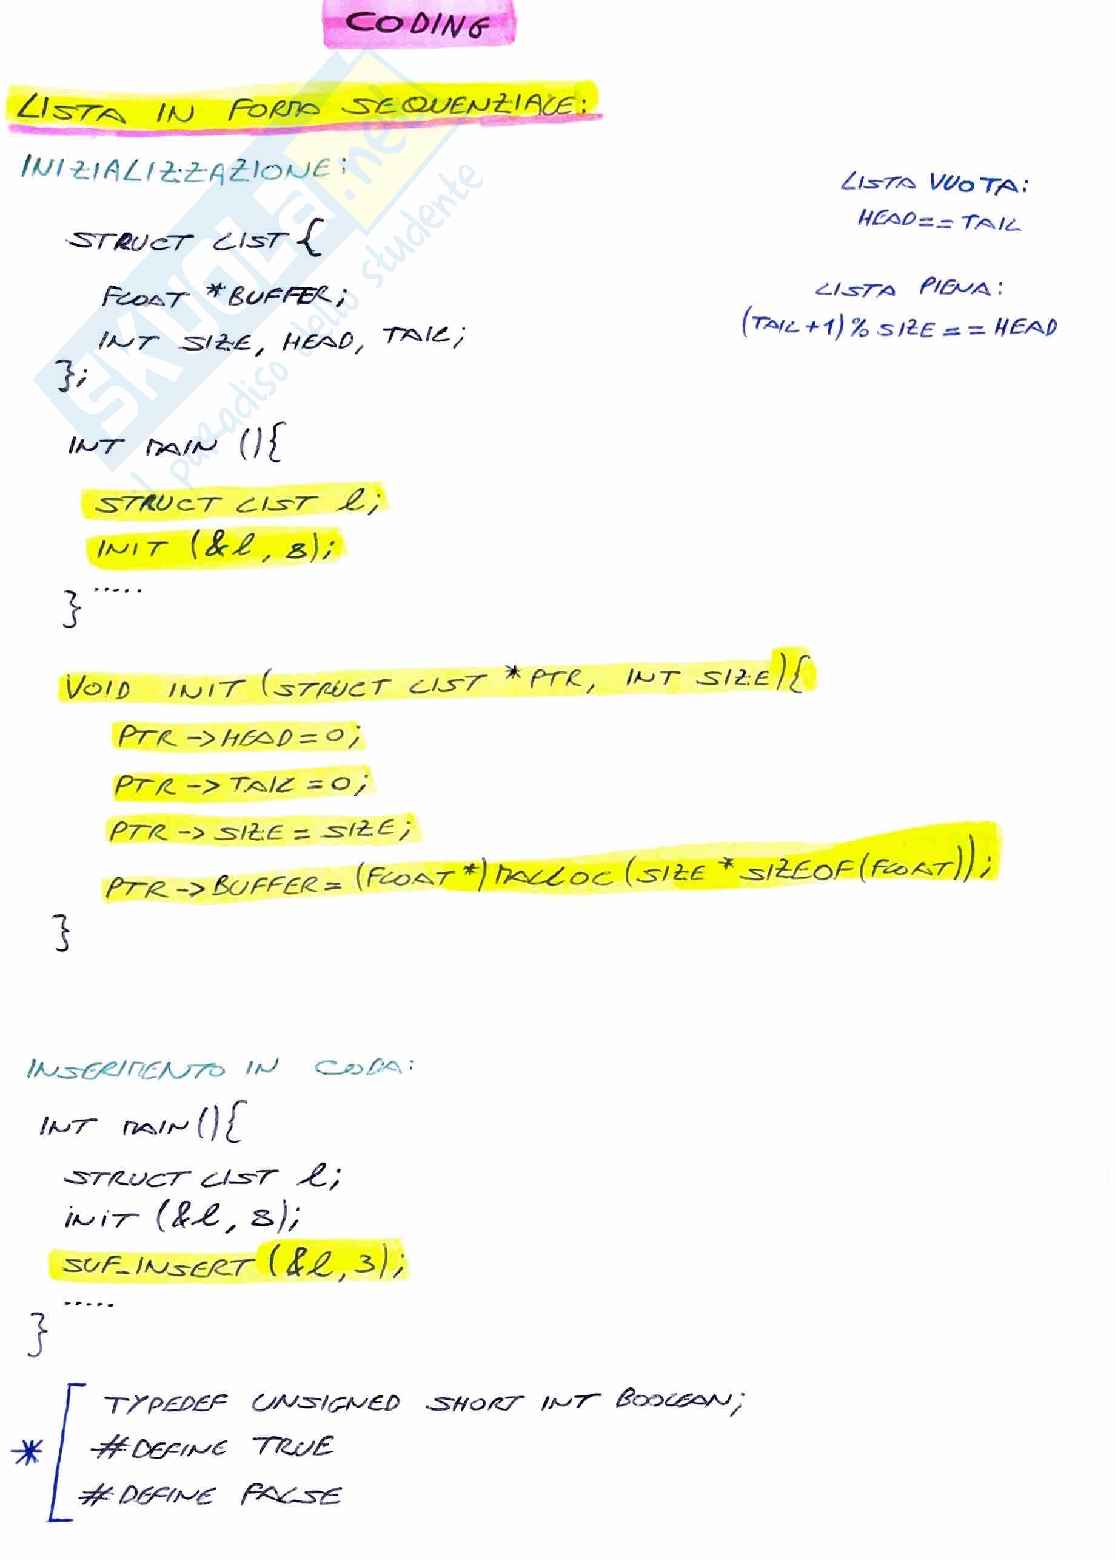 CODING
LISTA IN FORMA SEQUENZIALE:
INIZIALIZZAZIONE:
LISTA VUOTA:
HEAD == TAIL
STRUCT LIST {
FLOAT *BUFFER;
INT SIZE, HEAD, TAIL;
};
LISTA PIENA:
(TAIL+1) % SIZE == HEAD
INT MAIN (){
STRUCT LIST l;
INIT (&l, 8);
.....
}
VOID INIT (STRUCT LIST *PTR, INT SIZE){
PTR -> HEAD = 0;
PTR -> TAIL = 0;
PTR -> SIZE = SIZE;
PTR -> BUFFER = (FLOAT *) MALLOC (SIZE * SIZEOF(FLOAT));
}
INSERIMENTO IN CODA:
INT MAIN (){
STRUCT LIST l;
INIT (&l, 8);
SUF_INSERT (&l, 3);
.....
}
* [ TYPEDEF UNSIGNED SHORT INT BOOLEAN;
#DEFINE TRUE
#DEFINE FALSE
SKUOLA.net
il paradiso dello studente